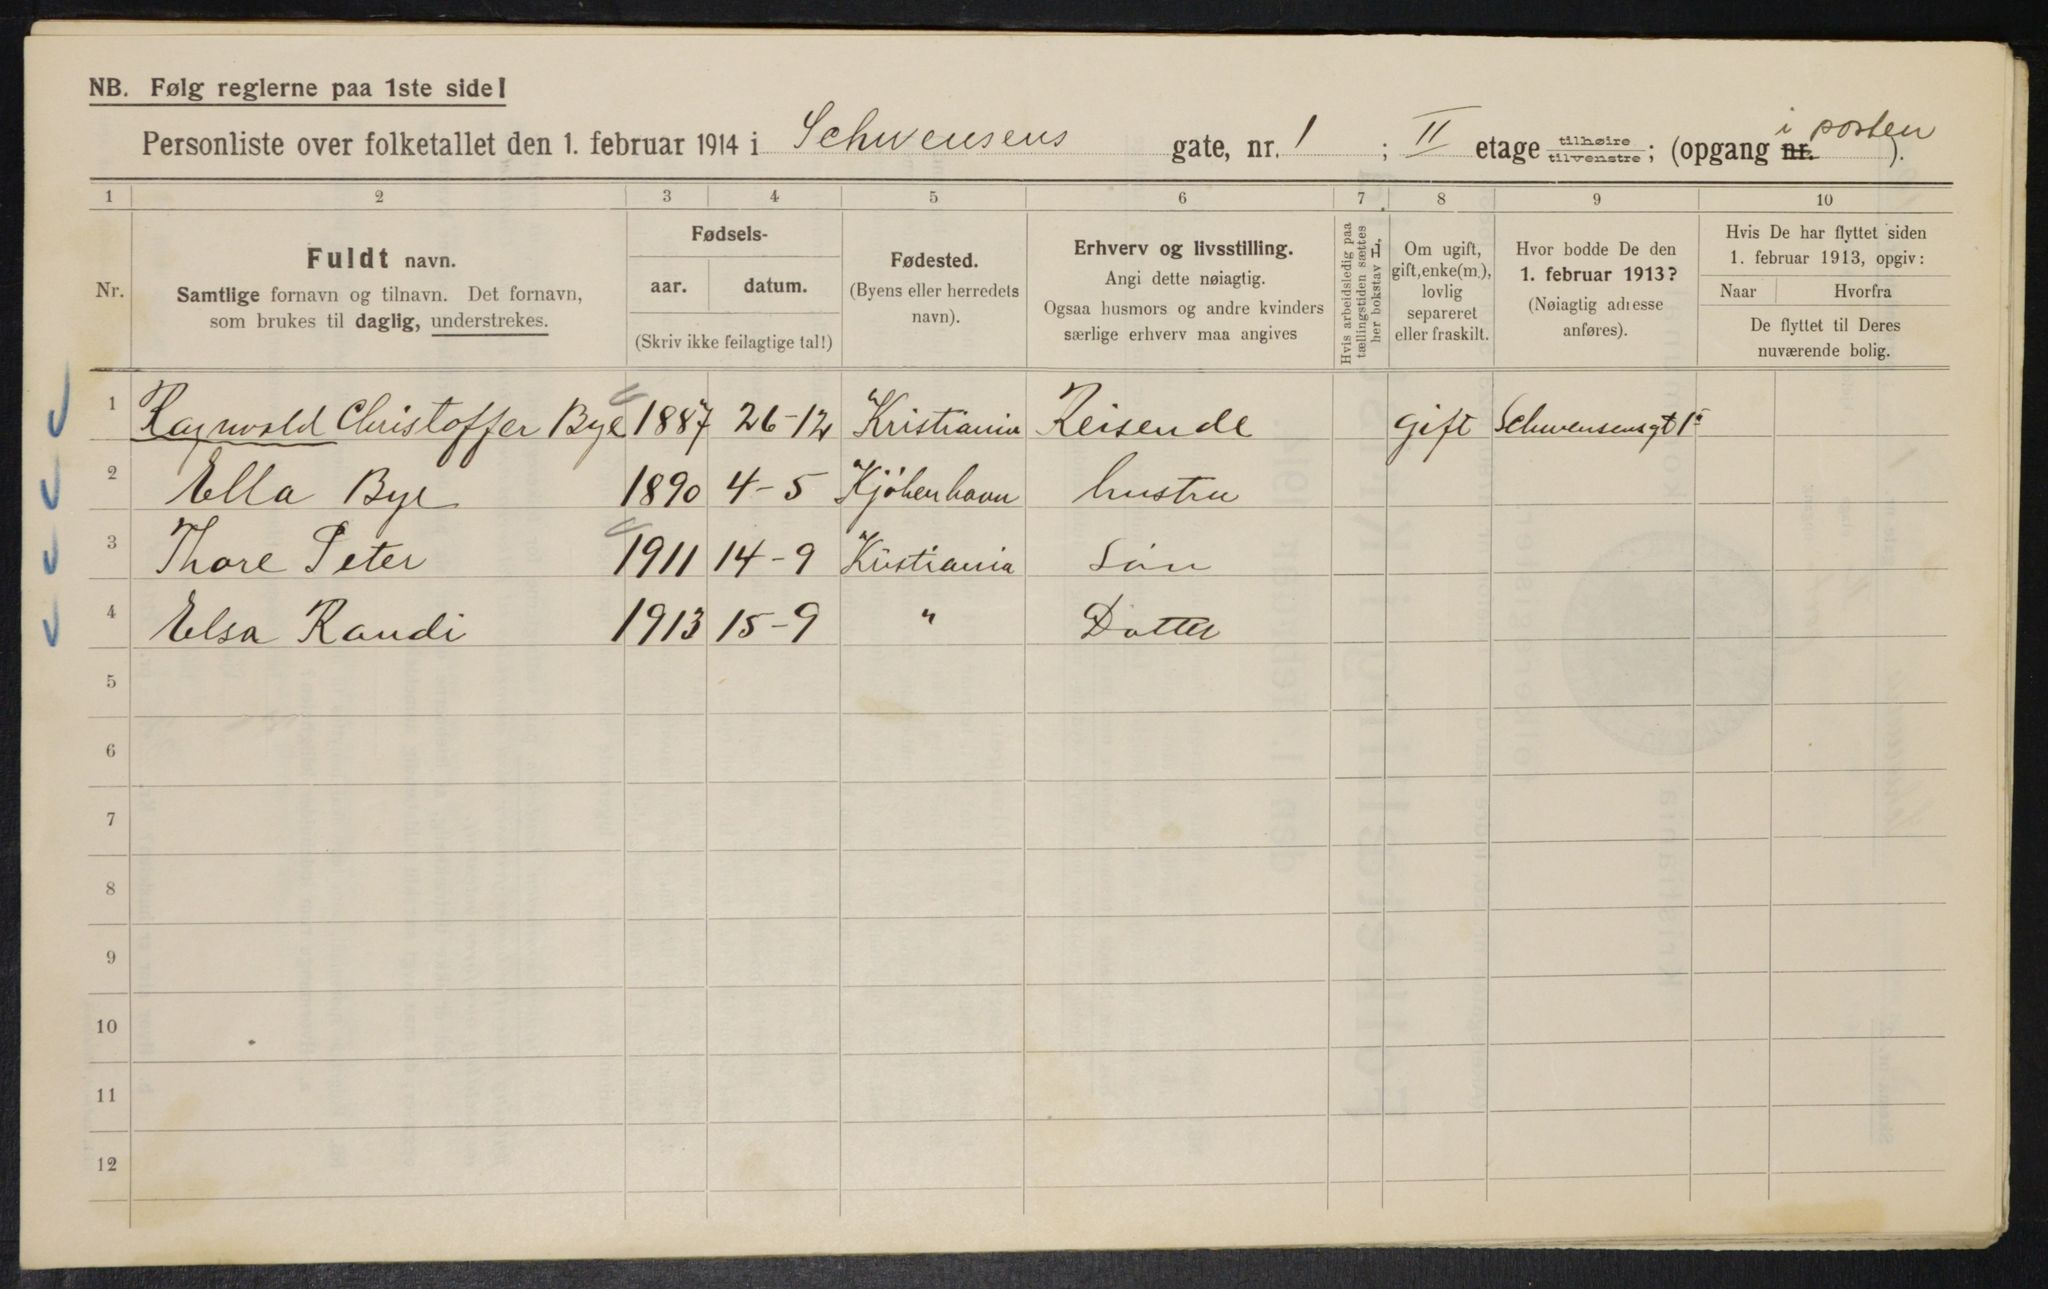 NB. Følg reglerne paa 1ste side!
Personliste over folketallet den 1. februar 1914 i Schwensens gate, nr. 1 ; II etage tilhøire tilvenstre ; (opgang nr. i porten ).
1 2 3 4 5 6 7 8 9 10
Nr.
Fuldt navn.
Samtlige fornavn og tilnavn. Det fornavn,
som brukes til daglig, understrekes.
Fødsels-
aar. datum.
(Skriv ikke feilagtige tal!)
Fødested.
(Byens eller herredets
navn).
Erhverv og livsstilling.
Angi dette nøiagtig.
Ogsaa husmors og andre kvinders
særlige erhverv maa angives
Hvis arbeidsledig paa
tællingstiden sættes
her bokstav L.
Om ugift,
gift, enke(m.),
lovlig
separeret
eller fraskilt.
Hvor bodde De den
1. februar 1913?
(Nøiagtig adresse
anføres).
Hvis De har flyttet siden
1. februar 1913, opgiv:
Naar Hvorfra
De flyttet til Deres
nuværende bolig.
1 Ragnvald Christoffer Bye 1887 26-12 Kristiania Reisende gift Schwensensgt 1
2 Ella Bye 1890 4-5 Kjøbenhavn hustru
3 Thore Peter 1911 14-9 Kristiania Søn
4 Elsa Randi 1913 15-9 " Datter
5
6
7
8
9
10
11
12